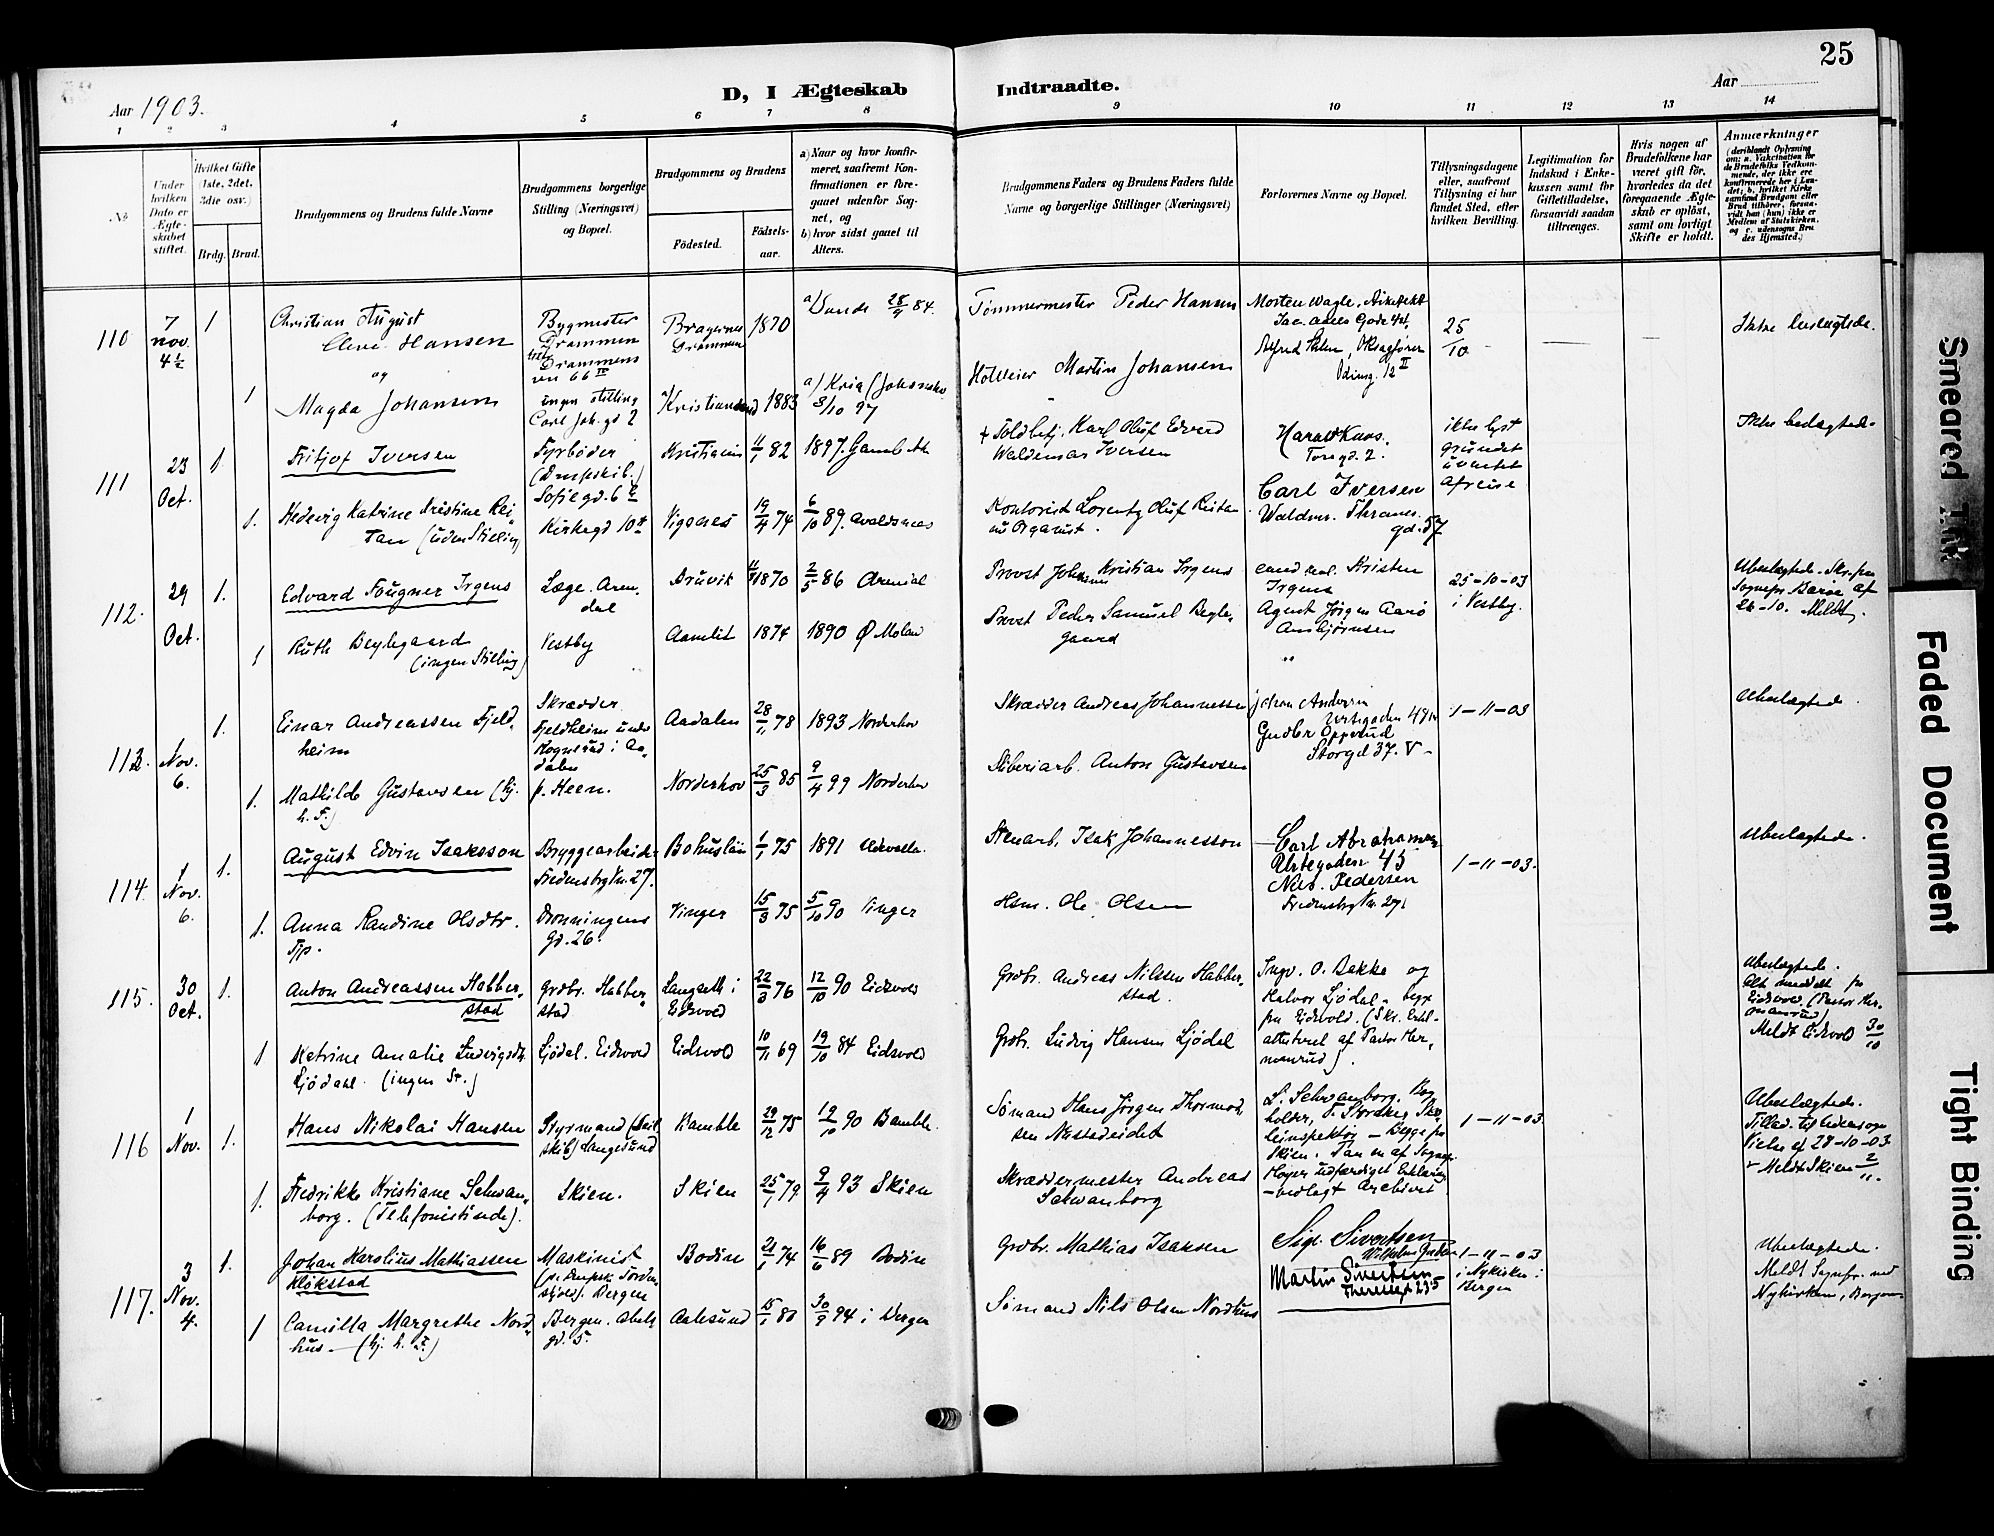 25
Aar 1903.
D, I Ægteskab Indtraadte.
Aar
1 2 3 4 5 6 7 8 9 10 11 12 13 14
No
Under hvilken Dato er Ægteskabet stiftet.
Hvilket Gifte (1ste, 2det, 3die osv.)
Brdg. Brud.
Brudgommens og Brudens fulde Navne
Brudgommens borgerlige Stilling (Næringsvei) og Bopæl.
Brudgommens og Brudens
Födested.
Födselsaar.
a) Naar og hvor konfirmeret, saafremt Konfirmationen er foregaaet udenfor Sognet, og
b) hvor sidst gaaet til Alters.
Brudgommens Faders og Brudens Faders fulde Navne og borgerlige Stillinger (Næringsvei)
Forlovernes Navne og Bopæl.
Tillysningsdagene eller, saafremt Tillysning ei har fundet Sted, efter hvilken Bevilling.
Legitimation for Indskud i Enkekassen samt for Giftetilladelse, forsaavidt saadan tiltrænges.
Hvis nogen af Brudefolkene har været gift før, hvorledes da det foregaaende Ægteskab er oplöst, samt om lovligt Skifte er holdt.
Anmærkninger
(deriblandt Oplysning om: a. Vakcination for de Brudefolks Vedkommende, der ikke ere konfirmerede her i Landet; b. hvilket Kirkesamfund Brudgom eller Brud tilhörer, forsaavidt han (hun) ikke er Medlem af Statskirken, og c. udensogns Brudes Hjemsted.)
110
7 nov. 4½
1
Christian August
Hansen
og
Bygmester
Drammen
Drammens
66 II
Bragernes
Drammen
1870
a) 28/9 84.
Tømmermester Peder Hansen
Morten Wagle, Arkitekt
25/10
1
Magda Johansen
ingen stilling
Carl Joh. gd 2
Kristiansund
1883
a) Kria (Johannes)
3/10 97
Martin Johansen
12 II
111
23 Oct.
1.
Fritjof Iversen
Fyrbøder
Sofiegd. 6
Kristiania
11/1 82
1897. Gamle Ak
+ Toldbetj. Karl Oluf Edvard
Waldemar Iversen
Harald Kaas.
Toregd. 2.
ikke lyst
grundet
uventet
afreise
Ikke beslægtede.
1.
Hedevig Katrine Kristine Reitan (uden Stilling)
Kirkegd 10
Vigsnes
19/4 74
6/10 89. Avaldsnes
Kontorist Lorentz Oluf Reitan
og Organist.
Carl Iversen
Waldem. Thranes
gd. 57
112.
29 Oct.
1.
Edvard Fougner Irgens
Læge. Arendal
Bruvik
1870
2/5 86 Arendal
Provst Johannes Kristian Irgens
cand. real. Kristen
Irgens
25-10-03
i Vestby.
Ubeslægtede. Skr. fra
Sognepr. Barøe af
26-10. Meldt.
1
Ruth Beglegaard
(ingen Stilling)
Vestby
Aamlit
1874
1890 Ø Moland
Provst Peder Samuel Beglegaard
Agent Jørgen Aarø
Ansbjørnsen
113.
1 Nov. 6.
1.
Einar Andreassen Fjeldheim
Skrædder.
Fjeldheim under
Hognerud i Aadalen
Aadalen
28/1 78
1893 Norderhov
Skrædder Andreas Johannessen
Johan Andersen
Gudbr. Opperud
Storgd 37. V
1-11-03
Ubeslægtede.
1.
Mathilde Gustavsen (hj. h. F.)
p. Heen.
Norderhov
25/3 85
9/4 99 Norderhov
Sliberiarb. Anton Gustavsen
114.
1 Nov. 6.
1.
August Edvin Isaksson
Bryggearbeider
Fredensbgvn. 27.
Bohuslän
1/1 75
1891 Udevalla.
Stenarb. Isak Johannesson
Carl Abrahamsen
Urtegaden 45
Nils. Pedersen
Fredensbgvn. 27
1-11-03.
Ubeslægtede.
1.
Anna Randine Olsdtr.
Tjp.
Dronningens
Gd. 26.
Vinger
15/3 75
5/10 90 Vinger
Hsm. Ole Olsen
115.
30 Oct.
1.
Anton Andreassen Habberstad
Grdbr. Habberstad
Langseth i
Eidsvold
22/3 76
12/10 90 Eidsvold
Grdbr. Andreas Nilsen Habberstad.
Ingv. O. Bakke og
Halvor Ljødal. begge
fra Eidsvold. (Skr. Erklattesteret af Pastor Hermanrud).
Ubeslægtede.
Alt meddelt fra
Eidsvold. (Pastor Hermanrud)
Meldt Eidsvold 30/10
1
Katrine Amalie Ludvigsdtr.
Ljødahl. (ingen St.)
Ljødal. Eidsvold
Eidsvold
10/11 69
19/10 84 Eidsvold
Grdbr. Ludvig Hansen Ljødal
116
1 Nov.
1.
Hans Nikolai Hansen
Styrmand (Seilskib) Langesund
Bamble
29/12 75
12/10 90 Bamble.
Sømand Hans Jørgen Thormodsen Nustadeidet
L. Schwanborg. Bogholder,
Begge fra
Skien.
Udfærdiget Erklæring
vedlagt Archivet.
1-11-03
Ubeslægtede.
Tillad. til Udensogns
Vielse af 28-10-03
+ Meldt Skien 2/11.
1.
Fredrikke Kristiane Schwanborg. (Telefonistinde).
Skien.
Skien
25/1 79
9/4 93 Skien
Skræddermester Andreas
Schwanborg
117.
3 Nov. 4.
1.
Johan Karolius Mathiassen
Kløkstad
Maskinist
(p. Dampsk. Tordenskjold). Bergen
Bodin
21/1 74
16/6 89 Bodin
Grdbr. Mathias Isaksen
Sigv. Sivertsen
Martin Sivertsen
1-11-03
i Nykirken i
Bergen
Ubeslægtede.
Meldt Sognepr. ved
Nykirken, Bergen
1
Camilla Margrethe Nordhus - (hj. h. F.)
Bergen.
gd. 5.
Aalesund
15/1 80
30/9 94 i Bergen
Sømand Nils Olsen Nordhus
Smeared Ink
Faded Document
Tight Binding